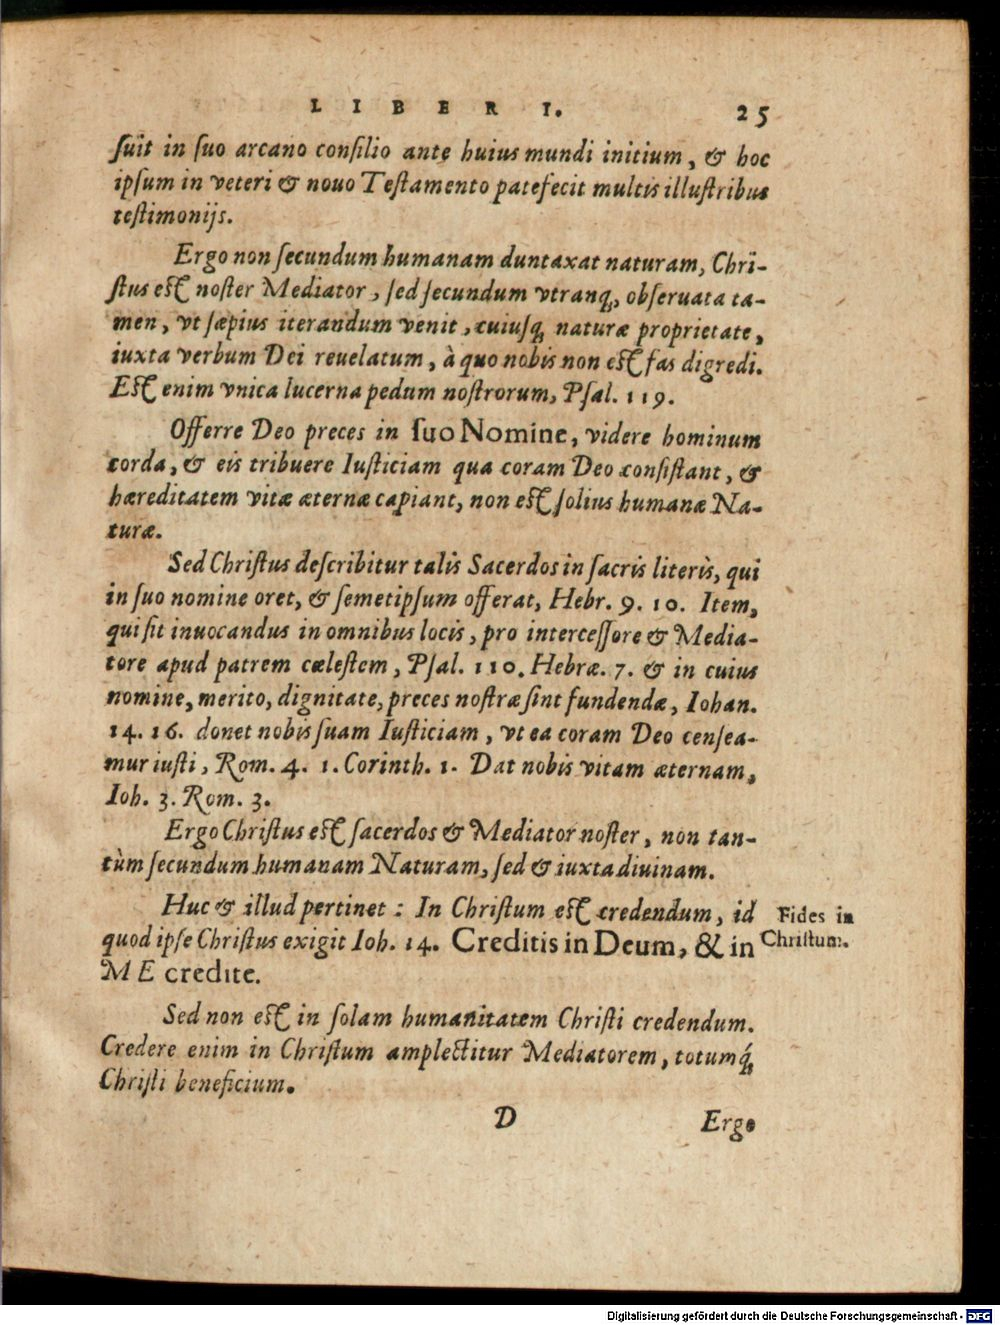 LIBER I. 25
ſuit in ſuo arcano conſilio ante huius mundi initium, & hoc
ipſum in veteri & nouo Teſtamento patefecit multis illuſtribus
teſtimonijs.
Ergo non ſecundum humanam duntaxat naturam, Chri-
ſtus eſt noſter Mediator, ſed ſecundum vtranq́, obſeruata ta-
men, vt ſæpius iterandum venit, cuiuſq́ naturæ proprietate,
iuxta verbum Dei reuelatum, à quo nobis non eſt fas digredi.
Eſt enim vnica lucerna pedum noſtrorum, Pſal. 119.
Offerre Deo preces in ſuo Nomine, videre hominum
corda, & eis tribuere Iuſticiam qua coram Deo conſiſtant, &
hæreditatem vitæ æternæ capiant, non eſt ſolius humanæ Na-
turæ.
Sed Chriſtus deſcribitur talis Sacerdos in ſacris literis, qui
in ſuo nomine oret, & ſemetipſum offerat, Hebr. 9. 10. Item,
qui ſit inuocandus in omnibus locis, pro interceſſore & Media-
tore apud patrem cœleſtem, Pſal. 110. Hebræ. 7. & in cuius
nomine, merito, dignitate, preces noſtræ ſint fundendæ, Iohan.
14. 16. donet nobis ſuam Iuſticiam, vt ea coram Deo cenſea-
mur iuſti, Rom. 4. 1. Corinth. 1. Dat nobis vitam æternam,
Ioh. 3. Rom. 3.
Ergo Chriſtus eſt ſacerdos & Mediator noſter, non tan-
tùm ſecundum humanam Naturam, ſed & iuxta diuinam.
Huc & illud pertinet: In Chriſtum eſt credendum, id
quod ipſe Chriſtus exigit Ioh. 14. Creditis in Deum, & in
ME credite.
Fides in
Chriſtum.
Sed non eſt in ſolam humanitatem Chriſti credendum.
Credere enim in Chriſtum amplectitur Mediatorem, totumq́
Chriſti beneficium.
D Ergo
Digitalisierung gefördert durch die Deutsche Forschungsgemeinschaft - DFG